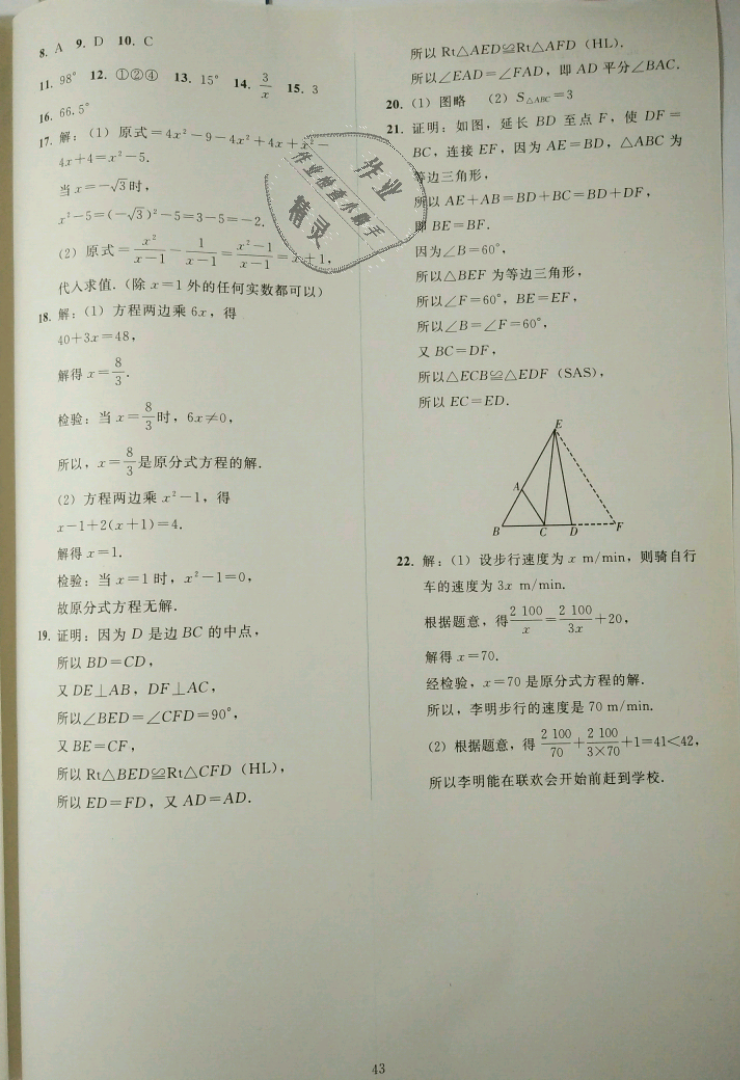 8. A  9. D  10. C
11. 98°  12. ①②④  13. 15°  14. 3/x  15. 3
16. 66.5°
17. 解：(1) 原式=4x²-9-4x²+4x+x²-
4x+4=x²-5.
当 x=-√3时，
x²-5=(-√3)²-5=3-5=-2.
(2) 原式=x²/(x-1)-1/(x-1)=(x²-1)/(x-1)=x+1，
代入求值.(除 x=1 外的任何实数都可以)
18. 解：(1) 方程两边乘 6x，得
40+3x=48，
解得 x=8/3.
检验：当 x=8/3时，6x≠0，
所以，x=8/3是原分式方程的解.
(2) 方程两边乘 x²-1，得
x-1+2(x+1)=4.
解得 x=1.
检验：当 x=1 时，x²-1=0，
故原分式方程无解.
19. 证明：因为 D 是边 BC 的中点，
所以 BD=CD，
又 DE⊥AB，DF⊥AC，
所以∠BED=∠CFD=90°，
又 BE=CF，
所以 Rt△BED≌Rt△CFD (HL)，
所以 ED=FD，又 AD=AD.
所以 Rt△AED≌Rt△AFD (HL)，
所以∠EAD=∠FAD，即 AD 平分∠BAC.
20. (1) 图略  (2) S△ABC=3
21. 证明：如图，延长 BD 至点 F，使 DF=
BC，连接 EF，因为 AE=BD，△ABC 为
等边三角形，
所以 AE+AB=BD+BC=BD+DF，
即 BE=BF.
因为∠B=60°，
所以△BEF 为等边三角形，
所以∠F=60°，BE=EF，
所以∠B=∠F=60°，
又 BC=DF，
所以△ECB≌△EDF (SAS)，
所以 EC=ED.
E
A
B C D F
22. 解：(1) 设步行速度为 x m/min，则骑自行
车的速度为 3x m/min.
根据题意，得2 100/x=2 100/3x+20，
解得 x=70.
经检验，x=70 是原分式方程的解.
所以，李明步行的速度是 70 m/min.
(2) 根据题意，得 2 100/70+2 100/(3×70)+1=41<42，
所以李明能在联欢会开始前赶到学校.
作业
作业检查小助手
精灵
43